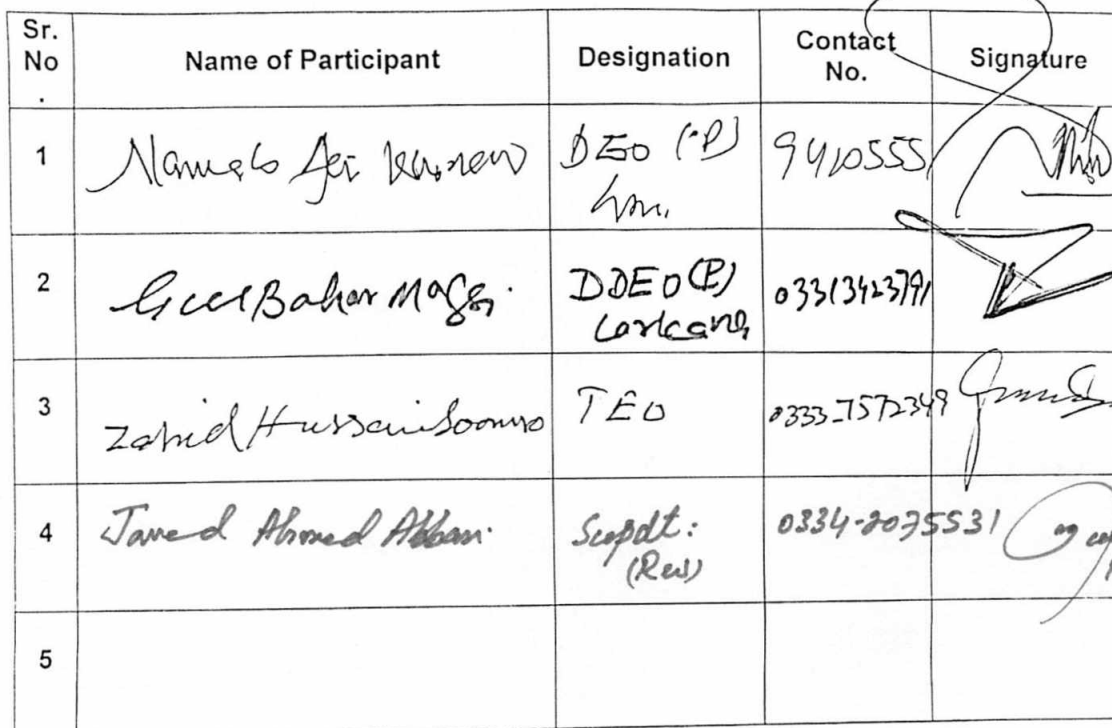 Sr. No . Name of Participant Designation Contact No. Signature
1 DEO (P) 9410555
2 Gul Bahar Magsi. DDEO (P) 03313423791
3 Zahid Hussain Soomro TEO 0333-7572349
4 Javed Ahmed Abbasi Supdt: 0334-2075531
5